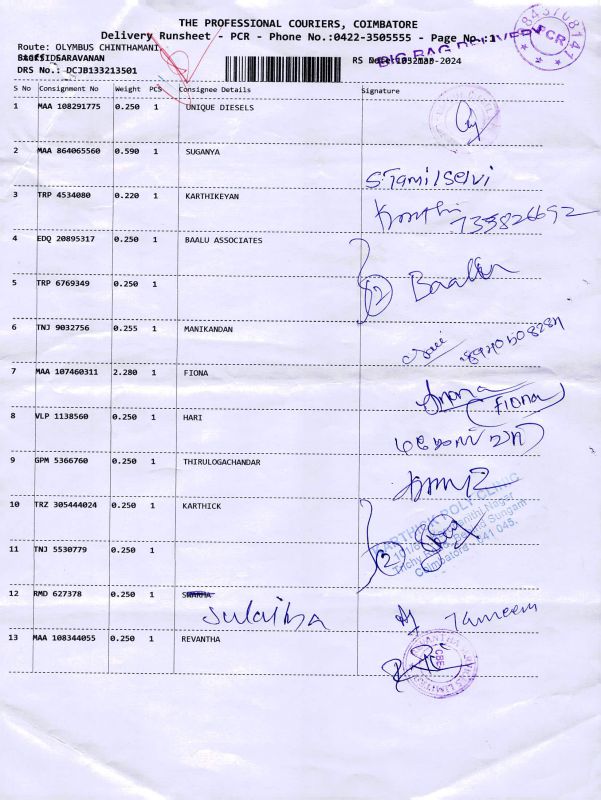 THE PROFESSIONAL COURIERS, COIMBATORE
Delivery Runsheet - PCR - Phone No.:0422-3505555 - Page No.:1
Route: OLYMBUS CHINTHAMANI
BIG BAG DELIVERY
PCR
SARAVANAN
DRS No.: DCJB133213501
S No Consignment No Weight PCS Consignee Details Signature
1 MAA 108291775 0.250 1 UNIQUE DIESELS
2 MAA 864065560 0.590 1 SUGANYA
S.Tamilselvi
3 TRP 4534080 0.220 1 KARTHIKEYAN
4 EDQ 20895317 0.250 1 BAALU ASSOCIATES
2
5 TRP 6769349 0.250 1
6 TNJ 9032756 0.255 1 MANIKANDAN
7 MAA 107460311 2.280 1 FIONA
(FIONA)
8 VLP 1138560 0.250 1 HARI
9 GPM 5366760 0.250 1 THIRULOGACHANDAR
10 TRZ 305444024 0.250 1 KARTHICK
KARTHICK POLY CLINIC
Trichy Road, Behind Sungam
Coimbatore - 641 045.
2
11 TNJ 5530779 0.250 1
12 RMD 627378 0.250 1
Sulaiha Tameem
13 MAA 108344055 0.250 1 REVANTHA
CBE